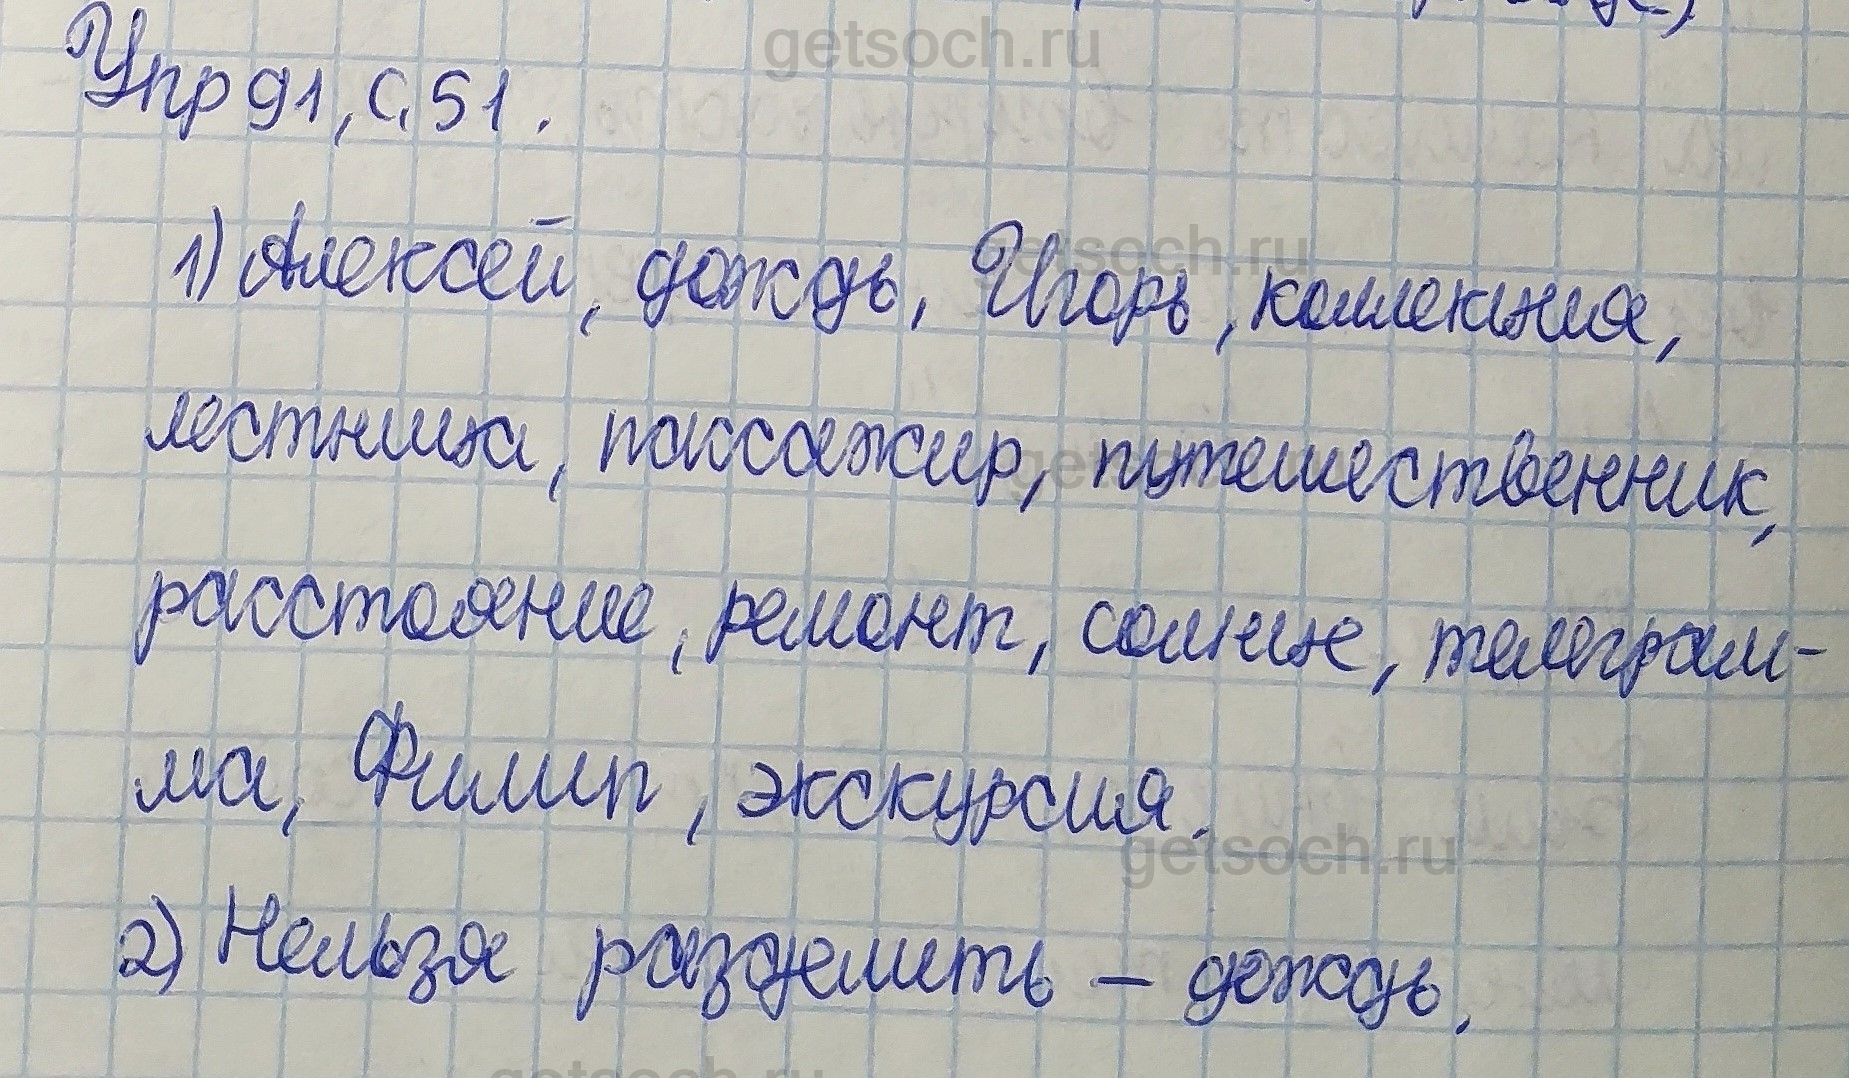 getsoch.ru
Упр 91, с. 51.
getsoch.ru
1) Алексей, дождь, Игорь, коллекция,
лестница, пассажир, путешественник,
расстояние, ремонт, солнце, телеграм-
ма, Филипп, экскурсия.
getsoch.ru
2) Нельзя разделить – дождь.
getsoch.ru